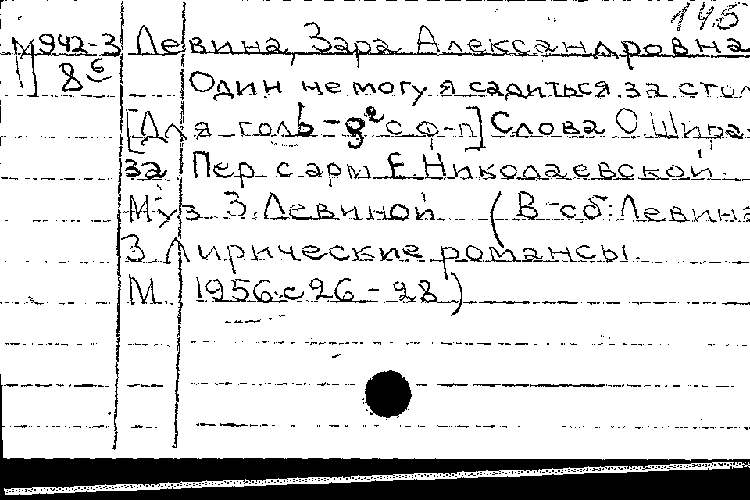 145
М942-3 Левина, Зара Александровна
8б Один не могу я садиться за стол
[Для гол b-g² с ф-п] Слова О. Шира-
за Пер с арм Е. Николаевской.
Муз З. Левиной (В сб: Левина
З Лирические романсы.
М. 1956. с 26-28)